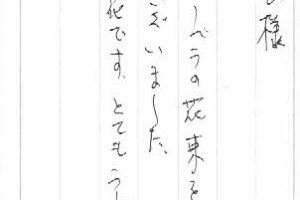 様
ーベラの花束を
ざいました。
花です。とてもうし